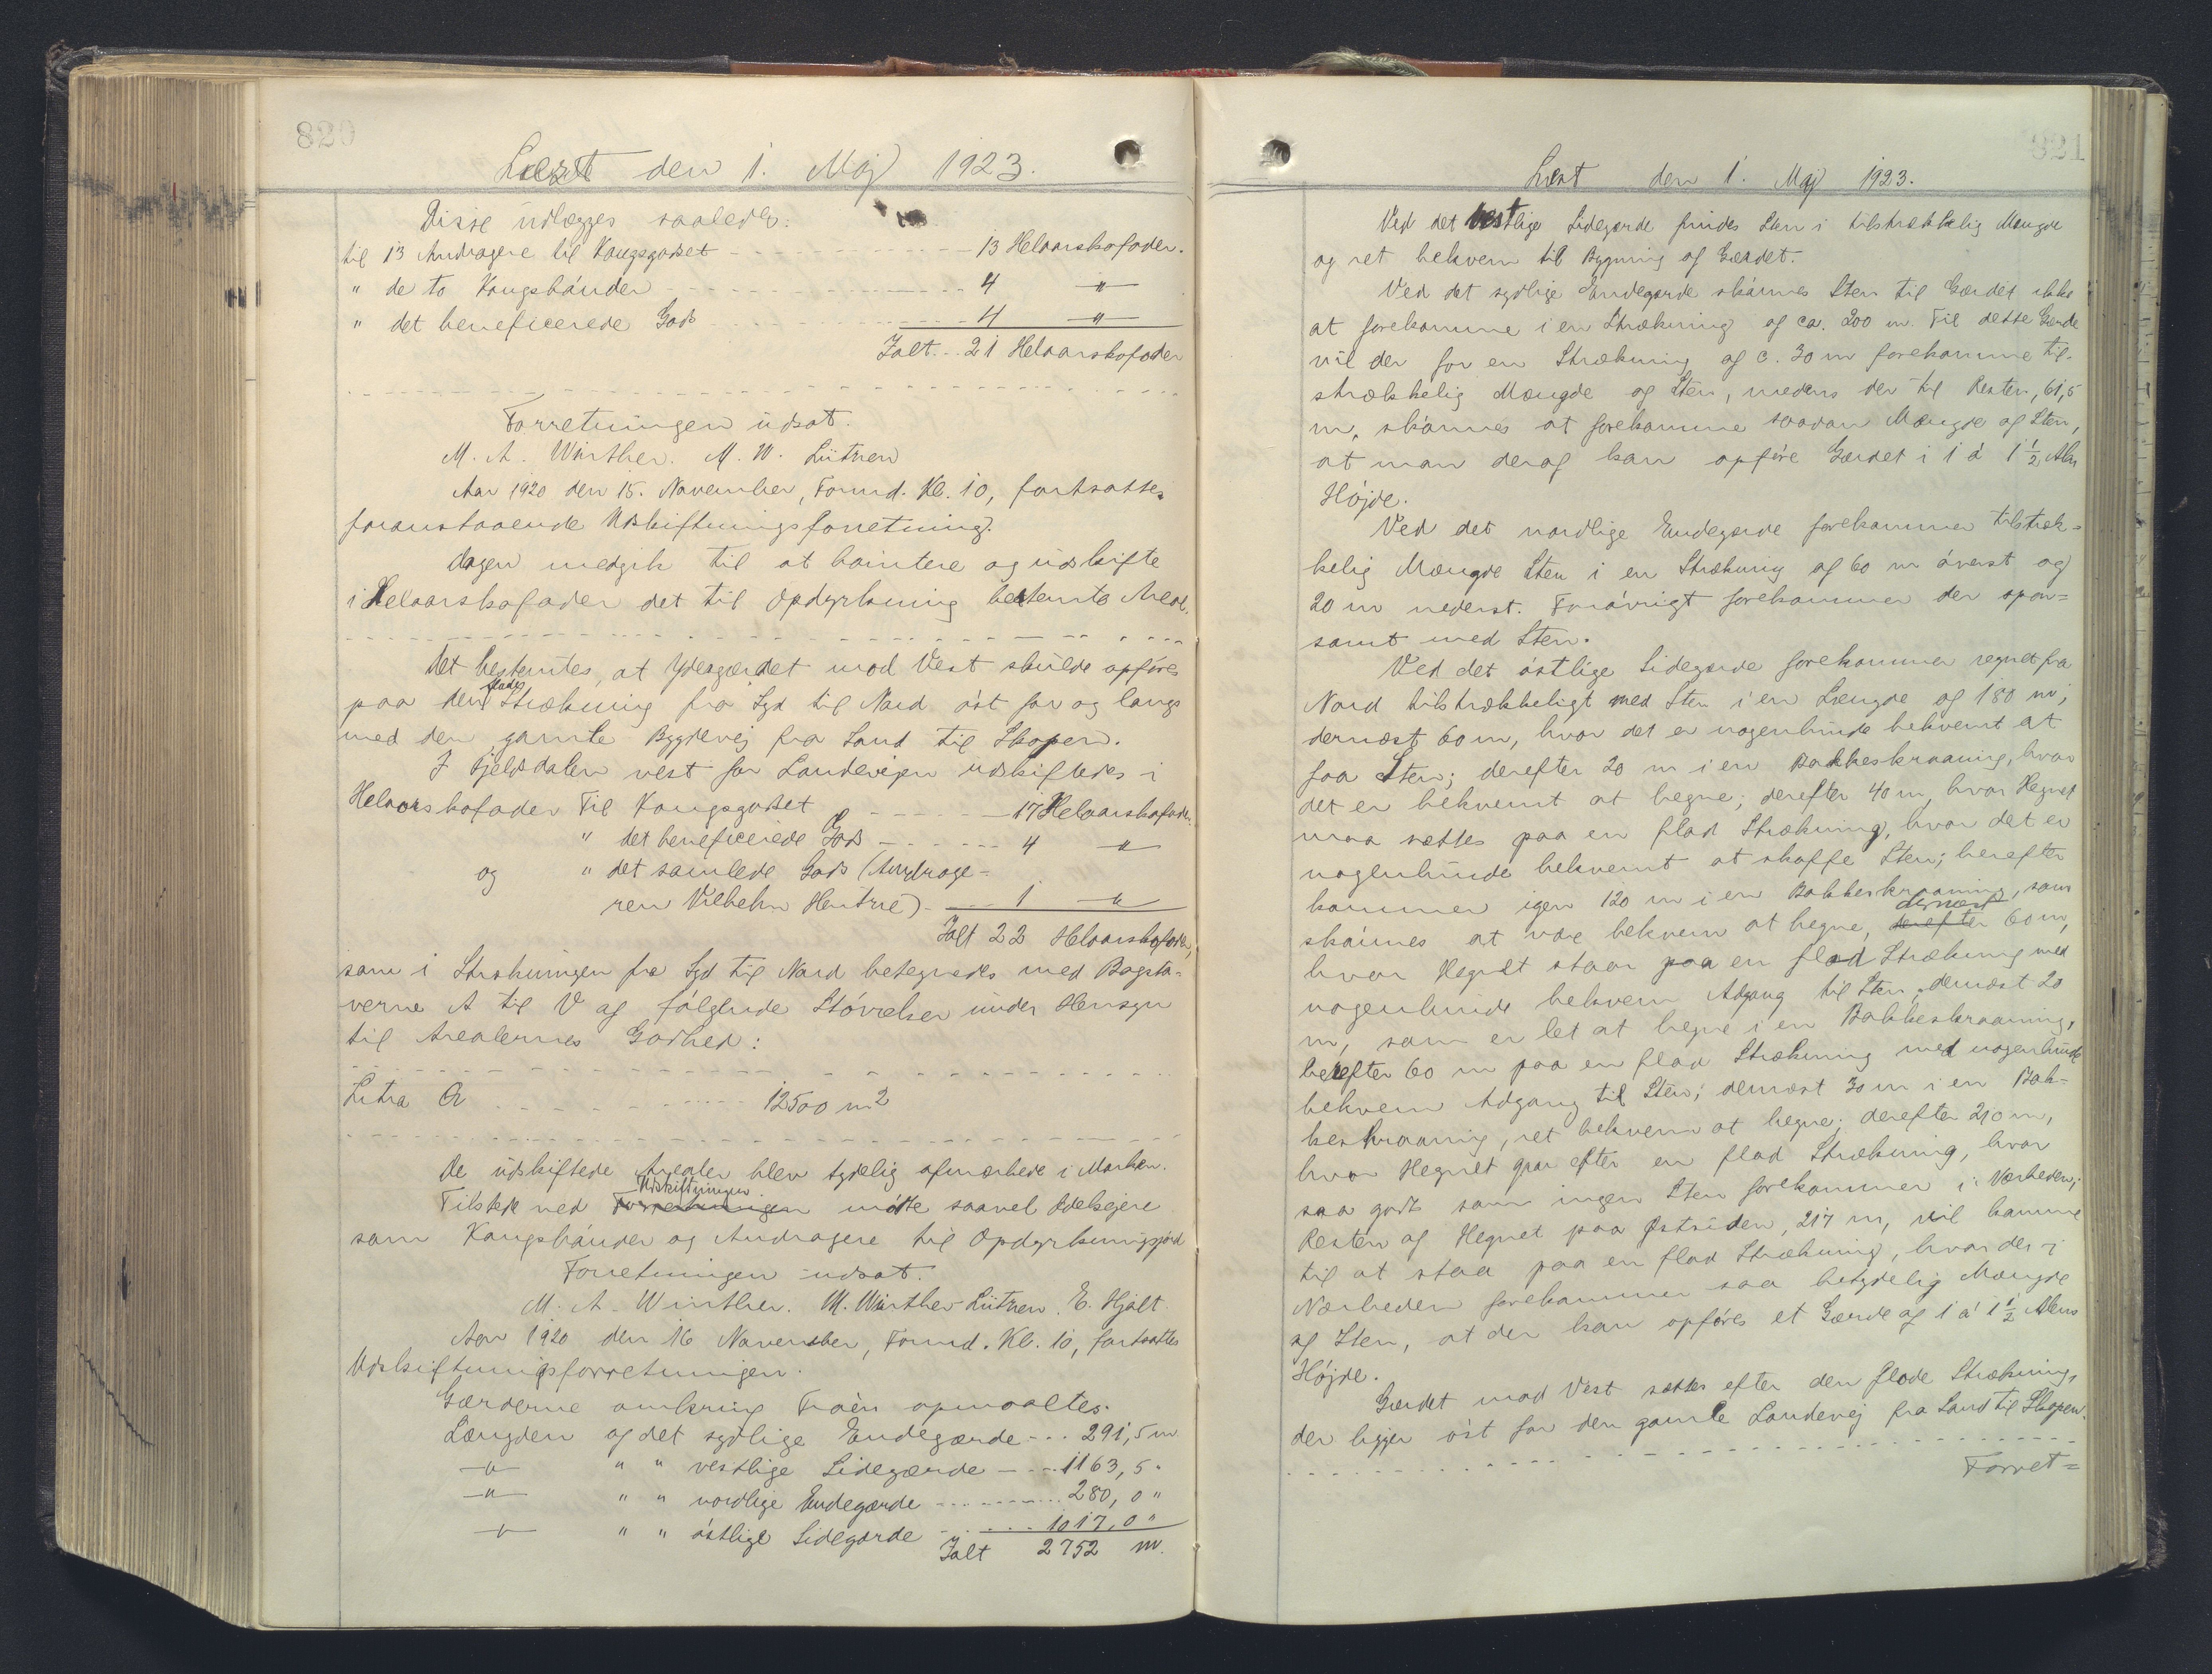 820
Læst den 1. Maj 1923.
Disse udlægges saaledes:
til 13 Andragere til Kongsgodset - - - 13 Helaarskofoder.
" de to Kongsbønder - - - 4 -"-
" det beneficerede Gods - - - 4 -"-
Ialt - - 21 Helaarskofoder
Forretningen udsat.
M. A. Winther. M. W. Lützen
Aar 1920 den 15. November, Formd. Kl. 10, fortsattes
foranstaaende Udskiftningsforretning.
Dagen medgik til at bonitere og udskifte
i Helaarskofoder det til Opdyrkning bestemte Areal.
Det bestemtes, at Ydergærdet mod Vest skulde opføres
paa den flade Strækning fra Syd til Nord øst for og langs
med den gamle Bygdevej fra Sand til Skopen.
I Fjeldsdalen vest for Landevejen udskiftedes i
Helaarskofoder til Kongsgodset - - - 17 Helaarskofoder.
" det beneficerede Gods - - - 4 -"-
og " det samlede Gods (Andrage=
ren Vilhelm Hentze) - - - 1 -"-
Ialt 22 Helaarskofoder,
som i Strækningen fra Syd til Nord betegnedes med Bogsta=
verne A til V af følgende Størrelser under Hensyn
til Arealernes Godhed:
Litra A - - - 12500 m²
De udskiftede Arealer blev tydelig afmærkede i Marken.
Tilstede ved Forretningen Udskiftningen mødte saavel Odelsejere
som Kongsbønder og Andragere til Opdyrkningsjord
Forretningen udsat.
M. A. Winther. M. Winther Lützen. E. Hjalt.
Aar 1920 den 16 November, Formd. Kl. 10, fortsattes
Udskiftningsforretningen.
Gærderne omkring Traen opmaaltes.
Længden af det sydlige Endegærde - - - 291,5 m
-"- " " vestlige Sidegærde - - - 1163,5 "
-"- " " nordlige Endegærde - - - 280,0 "
-"- " " østlige Sidegærde - - - 1017,0 "
Ialt 2752 m.
821
Læst den 1. Maj 1923.
Ved det vestlige Sidegærde findes Sten i tilstrækkelig Mængde
og ret bekvem til Bygning af Gærdet.
Ved det sydlige Endegærde skønnes Sten til Gærdet ikke
at forekomme i en Strækning af ca. 200 m. Til dette Gærde
vil der for en Strækning af c. 30 m forekomme til-
strækkelig Mængde af Sten, medens der til Resten, 61,5
m, skønnes at forekomme saadan Mængde af Sten,
at man deraf kan opføre Gærdet i 1 à 1 1/2 Alens
Højde.
Ved det nordlige Endegærde forekommer tilstræk=
kelig Mængde Sten i en Strækning af 60 m øverst og
20 m nederst. Forøvrigt forekommer der spar=
somt med Sten.
Ved det østlige Sidegærde forekommer regnet fra
Nord tilstrækkeligt med Sten i en Længde af 180 m;
dernæst 60 m, hvor det er nogenlunde bekvemt at
faa Sten; derefter 20 m i en Bakkeskraaning, hvor
det er bekvemt at hegne; derefter 40 m, hvor Hegnet
maa sættes paa en flad Strækning, hvor det er
nogenlunde bekvemt at skaffe Sten; herefter
kommer igen 120 m i en Bakkeskraaning, som
skønnes at være bekvem at hegne, derefter dernæst 60 m,
hvor Hegnet staar paa en flad Strækning med
nogenlunde bekvem Adgang til Sten, dernæst 20
m, som er let at hegne i en Bakkeskraaning,
herefter 60 m paa en flad Strækning med nogenlunde
bekvem Adgang til Sten; dernæst 30 m i en Bak=
keskraaning, ret bekvem at hegne; derefter 210 m,
hvor Hegnet gaar efter en flad Strækning, hvor
saa godt som ingen Sten forekommer i Nærheden;
Resten af Hegnet paa Østsiden, 217 m, vil komme
til at staa paa en flad Strækning, hvor der i
Nærheden forekommer saa betydelig Mængde
af Sten, at der kan opføres et Gærde af 1 à 1 1/2 Alens
Højde.
Gærdet mod Vest sættes efter den flade Strækning,
der ligger øst for den gamle Landevej fra Sand til Skopen.
Forret=